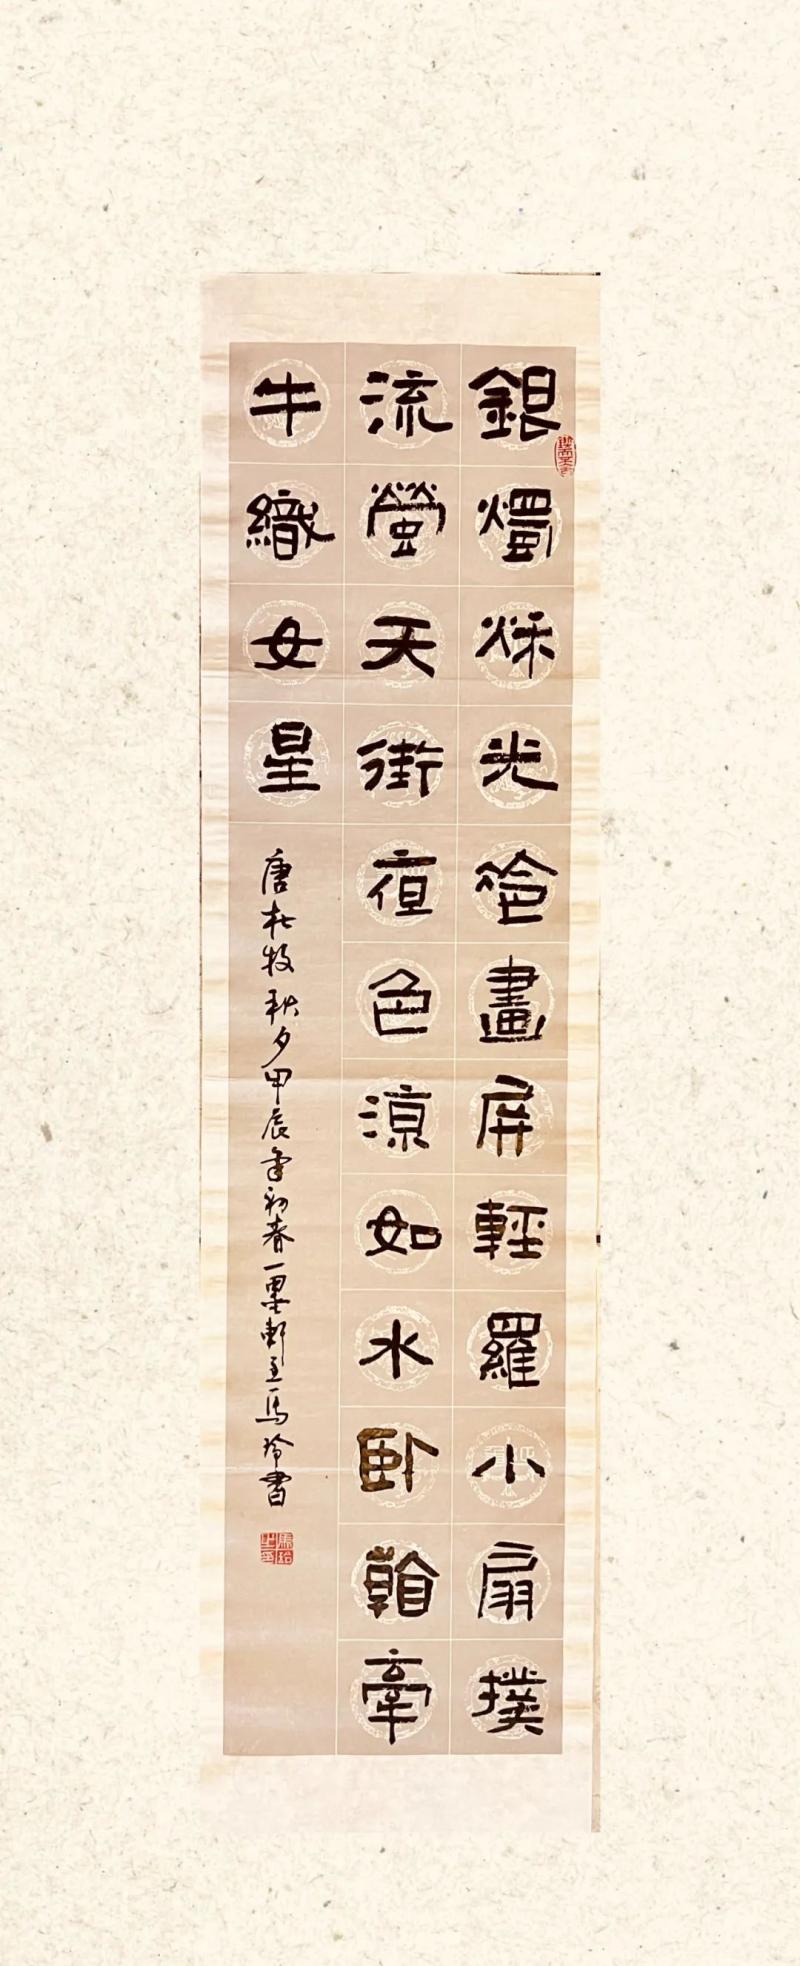 銀燭秋光冷畫屏輕羅小扇撲
流螢天街夜色涼如水臥看牽
牛織女星
唐杜牧秋夕甲辰年初春一墨軒主馬玲書
馬玲之印